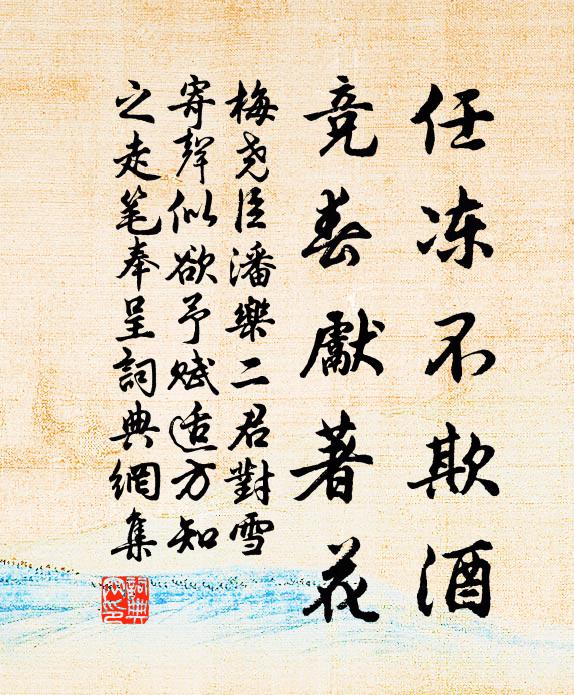 任冻不欺酒
竞春獻著花
梅尧臣潘樂二君對雪
寄聲似欲予赋适方知
之走笔奉呈詞典網集